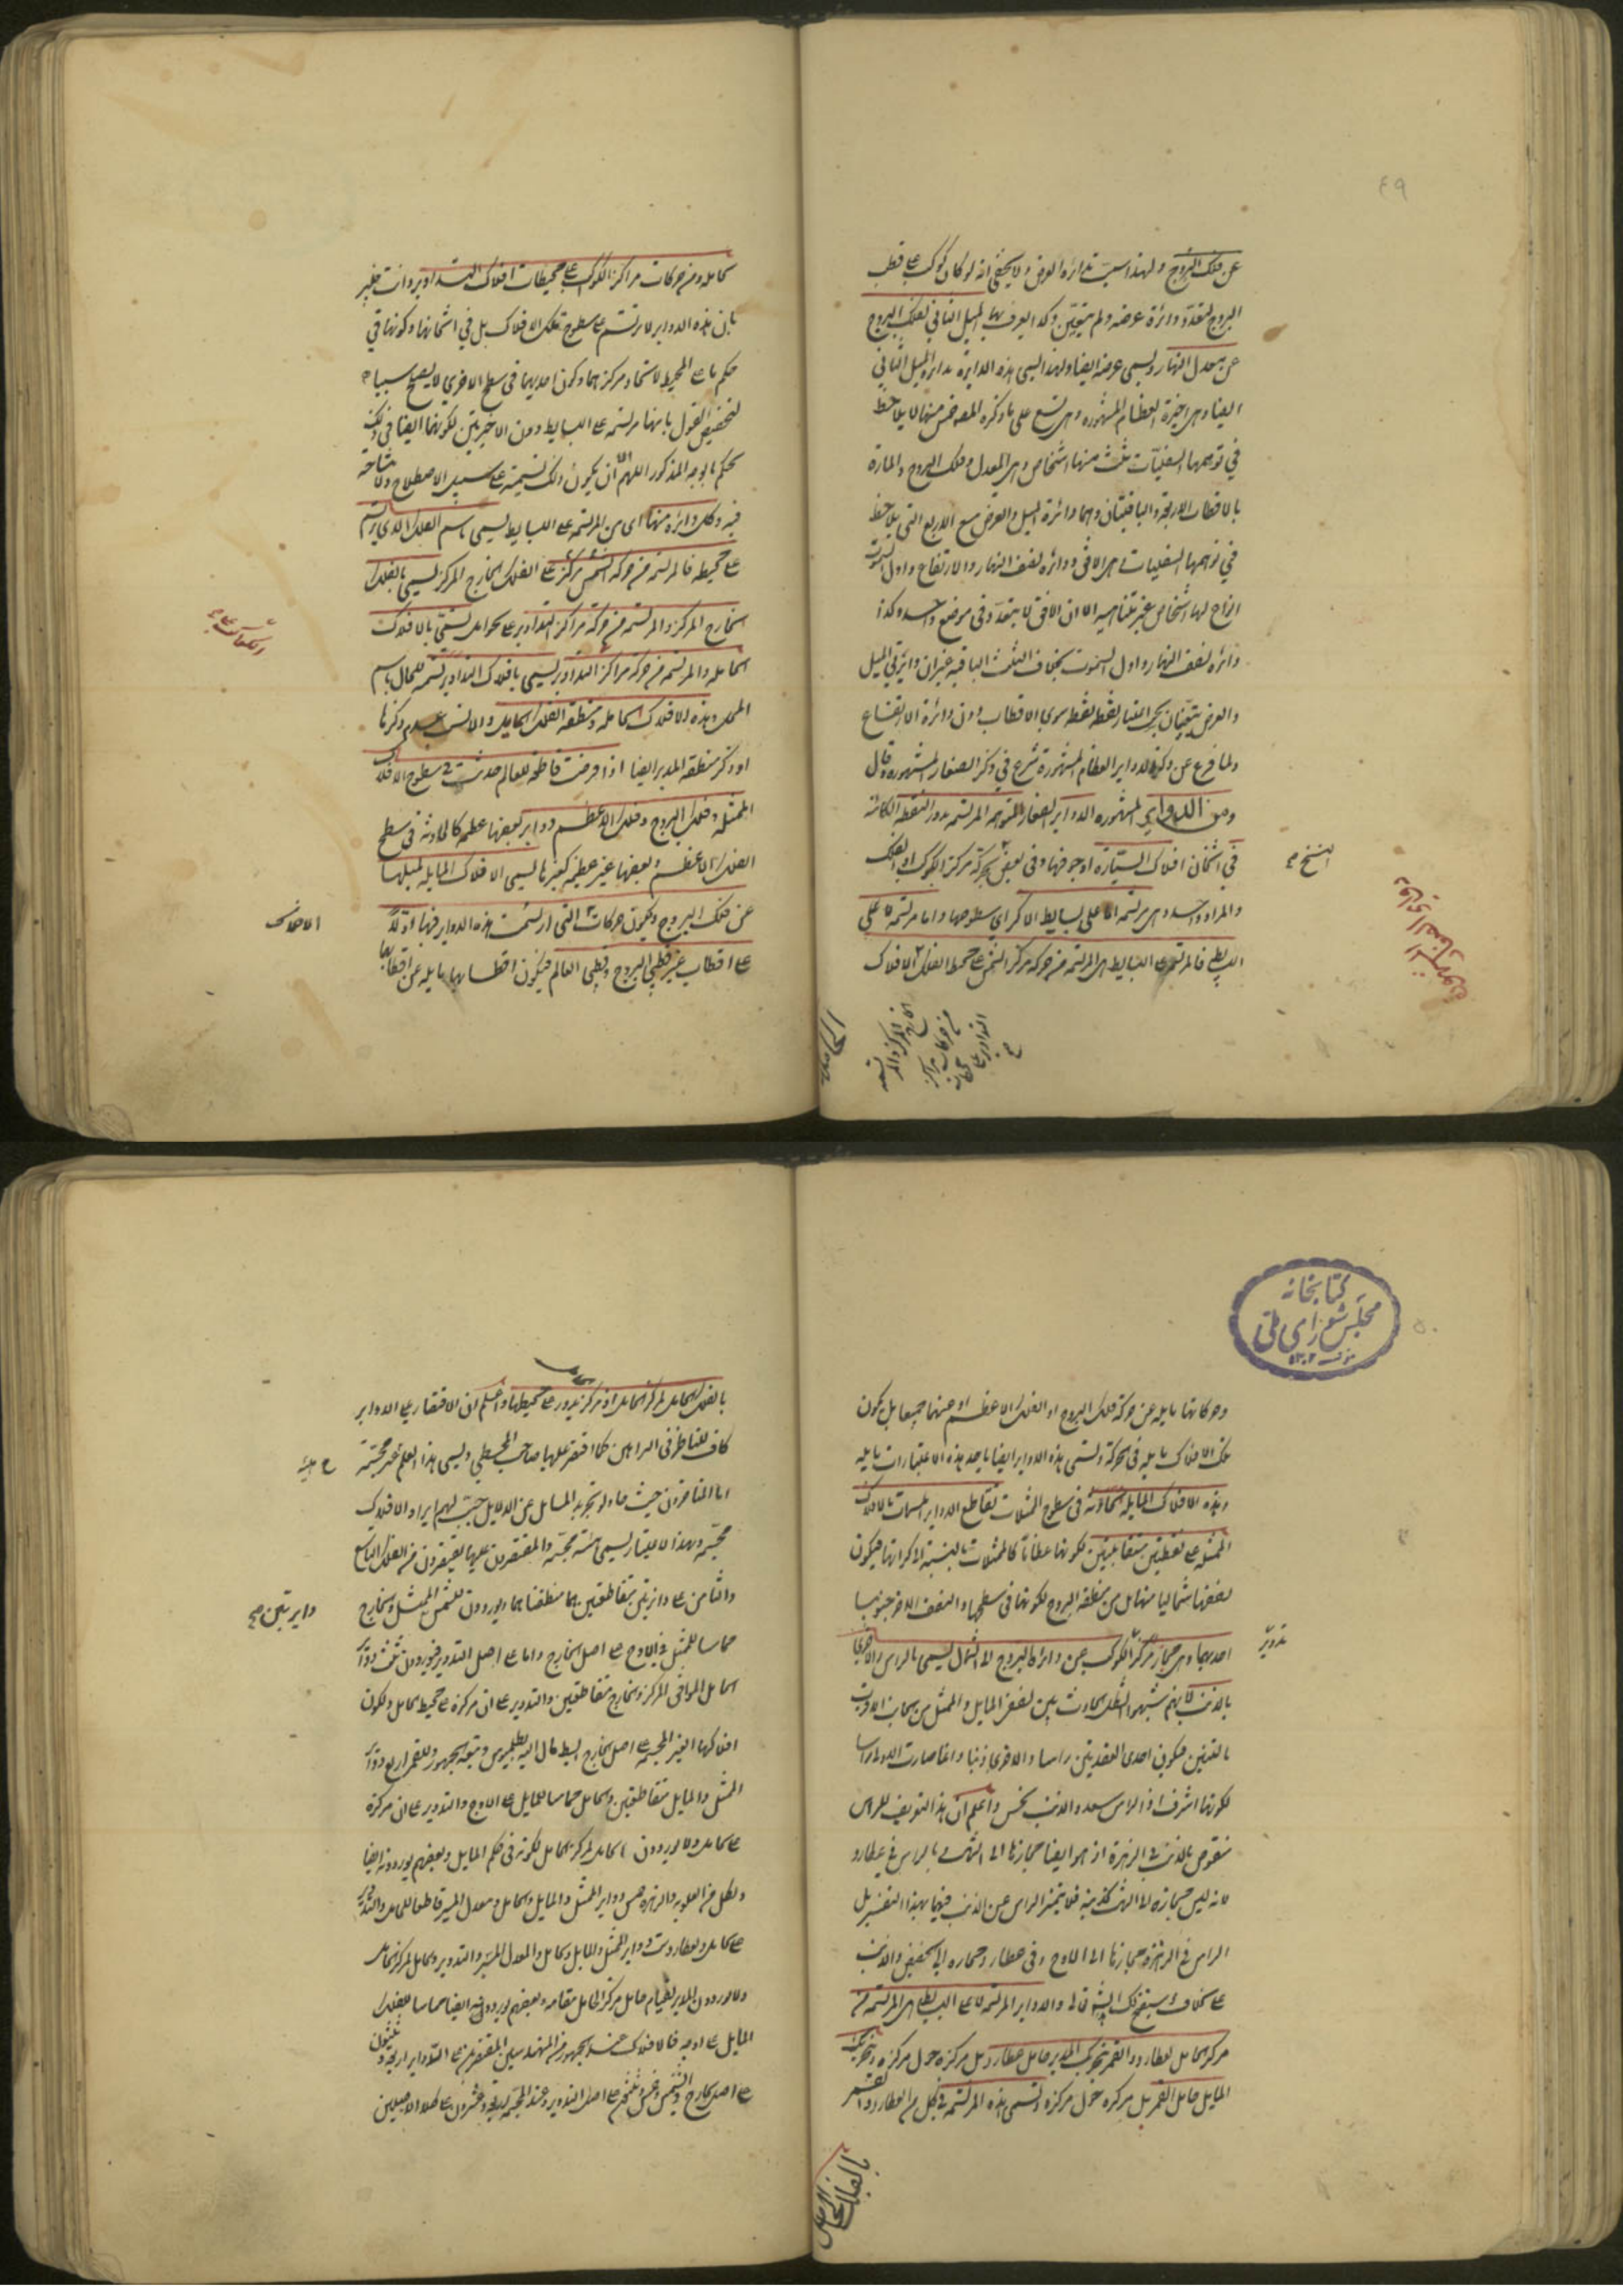 ٤٩
عن فلك البروج ولهذا سميت دائرة العرض ولا يخفى انه لو كان كوكب على قطب
البروج لتعدد دائرة عرضه ولم يتعين وكذا يعرف بها الميل الثاني لفلك البروج
عن معدل النهار ويسمى عرضه ايضا ولهذا يسمى هذه الدايرة بدائرة الميل الثاني
ايضا وهي اخيرة العظام المشهورة وهي تسع على ما ذكره المصنف منها لا يلاحظ
في توهمها السفليات ثلث منها اشخاص وهي المعدل وفلك البروج والمارة
بالاقطاب الاربعة والباقيتان وهما دائرة الميل والعرض مع الاربع التي يلاحظ
في توهمها السفليات هي الافق ودائرة نصف النهار والارتفاع واول السموت
انواع لها اشخاص غير متناهية الا ان الافق لا يتعدد في موضع واحد وكذا
دائرة نصف النهار واول السموت بخلاف الثلث الباقية غير ان دائرتي الميل
والعرض يتعينان بحسب اعتبار نقطة نقطة سوى الاقطاب دون دائرة الارتفاع
ولما فرغ عن ذكر الدواير العظام المشهورة شرع في ذكر الصغار المشهورة وقال
ومن الدواير المشهورة الدواير الصغار المتوهمة المرتسمة بدور النقطة الكائنة
في اثخان افلاك السيارة او جوفها وفي بعض النسخ بحركة مركز الكوكب او الفلك
والمراد واحد وهي مرتسمة اما على بسايط الاكر اي سطوحها واما مرتسمة لا على
البسايط فالمرتسمة على البسايط هي المرتسمة من حركة مركز الشمس على محيط الفلك
الخارج المركز والمرتسمة
من حركات مراكز
التداوير على محيطات
الافلاك
كاملة ومن حركات مراكز الكواكب على محيطات افلاك التداوير وانت خبير
بان هذه الدواير لا ترتسم على سطوح تلك الافلاك بل في اثخانها وكونها في
حكم ما على المحيط لاتحاد مركزهما وكون احديهما في سطح الاخرى لا يصلح سببا
لتخصيص القول بانها مرتسمة على البسايط دون الاخيرتين لكونهما ايضا في ذلك
الحكم بالوجه المذكور اللهم الا ان يكون ذلك تسمية على سبيل الاصطلاح ولا مشاحة
فيه وكل دائرة منها اي من المرتسمة على البسايط يسمى باسم الفلك الذي يرتسم
على محيطه فالمرتسمة من حركة الشمس بمركز على الفلك الخارج المركز يسمى بالفلك
الخارج المركز والمرتسمة من حركة مراكز التداوير على الحوامل تسمى بالافلاك
الحاملة والمرتسمة من حركة مراكز الكواكب على التداوير يسمى بافلاك التداوير تسمية للحال باسم
المحل وهذه الافلاك الحاملة ومنطقة الفلك المايل والانسب عدم ذكرها
او ذكر منطقة المدير ايضا اذا فرضت قاطعة للعالم حدثت في سطوح الافلاك
الممثلة وفلك البروج وفلك الاعظم دواير بعضها عظيمة كالحادثة في سطح
الفلك الاعظم وبعضها غير عظيمة كغيرها يسمى الافلاك المايلة لميلها
عن فلك البروج ويكون حركات التي ارتسمت هذه الدواير فيها اولا
على اقطاب غير قطبي البروج وقطبي العالم فيكون اقطابها مايلة عن اقطابها
كتابخانه
مجلس شورای ملی
١٣٠٢
٥٠
وحركاتها مايلة عن حركة فلك البروج او الفلك الاعظم او عنهما جميعا بل يكون
تلك الافلاك مايلة في الحركة وتسمى هذه الدواير ايضا باحد هذه الاعتبارات مايلة
وهذه الافلاك المايلة الحادثة في سطوح الممثلات تقاطع الدواير المسماة بالافلاك
الممثلة على نقطتين متقابلتين لكونها عظاما كالممثلات بالنسبة الى كراتها فيكون
نصفها شماليا منها بل من منطقة البروج لكونها في سطحها والنصف الاخر جنوبيا
احديهما وهي مجاز مركز تدوير الكوكب عن دائرة البروج الى الشمال يسمى بالراس والاخرى
بالذنب لانهم شبهوا الشكل الحادث بين نصفي المايل والممثل من الجانب الاقرب
بالتنين فيكون احدى العقدتين راسا والاخرى ذنبا وانما صارت الاولى راسا
لكونها اشرف اذ الراس سعد والذنب نحس واعلم ان هذا التعريف للراس
منقوض بالذنب في الزهرة اذ هو ايضا مجازها الى الشمال وبالراس في عطارد
لانه ليس مجازه الى الشمال كذنبه فلا يتميز الراس عن الذنب فيهما بهذا التفسير بل
الراس في الزهرة مجازها الى الاوج وفي عطارد مجازه الى الحضيض والذنب
على خلاف ذلك سيتضح لك ان شاء الله والدواير المرتسمة لا على البسايط هي المرتسمة من
مركز الحامل لعطارد والقمر بتحريك المدير حامل عطارد بل مركزه حول مركزه وبتحريك
المايل حامل القمر بل مركزه حول مركزه وتسمى هذه المرتسمة في كل من عطارد والقمر
بالفلك الحامل
بالفلك الحامل لمركز الحامل اذ مركزه يدور على محيطها واعلم ان الاقتصار على الدواير
كاف للناظر في البراهين كما اقتصر عليها صاحب المجسطي ويسمى هذا العلم غير مجسمة
اما المتاخرون حيث حاولوا تجريد المسايل عن الدلايل وجب لهم ايراد الافلاك
مجسمة وبهذا الاعتبار يسمى هيئة مجسمة والمقتصرون عليها يقتصرون من الفلك التاسع
والثامن على دايرتين متقاطعتين هما منطقتاهما ويوردون للشمس الممثل والخارج
مماسا للممثل في الاوج على اصل الخارج واما على اصل التدوير فيوردون ثلث دواير
الحامل الموافق المركز والخارج متقاطعتين والتدوير على ان مركزه على محيط الحامل ولكون
افلاكها الغير المجسمة على اصل الخارج ابسط مال اليه بطلميوس وتبعه الجمهور وللقمر اربع دواير
الممثل والمايل متقاطعتين والحامل مماسا للمايل على الاوج والتدوير على ان مركزه
على الحامل ولا يوردون الحامل لمركز الحامل لكونه في حكم المايل وبعضهم يوردونه ايضا
ولكل من العلوية والزهرة خمس دواير الممثل والمايل والحامل ومعدل المسير قاطعا للحامل والتدوير
على الحامل ولعطارد ست دواير الممثل والمايل والحامل والمعدل المسير والتدوير والحامل لمركز الحامل
ولا يوردون المدير لقيام حامل مركز الحامل مقامه وبعضهم يوردونه ايضا مماسا للفلك
المايل على اوجه فالافلاك عند الجمهور من المهندسين المقتصرين على الدواير اربعة وثلثون
على اصل الخارج والشمس وخمس وثلثون على اصل التدوير وعند المجسمة اربعة وعشرون على كلا الاصلين